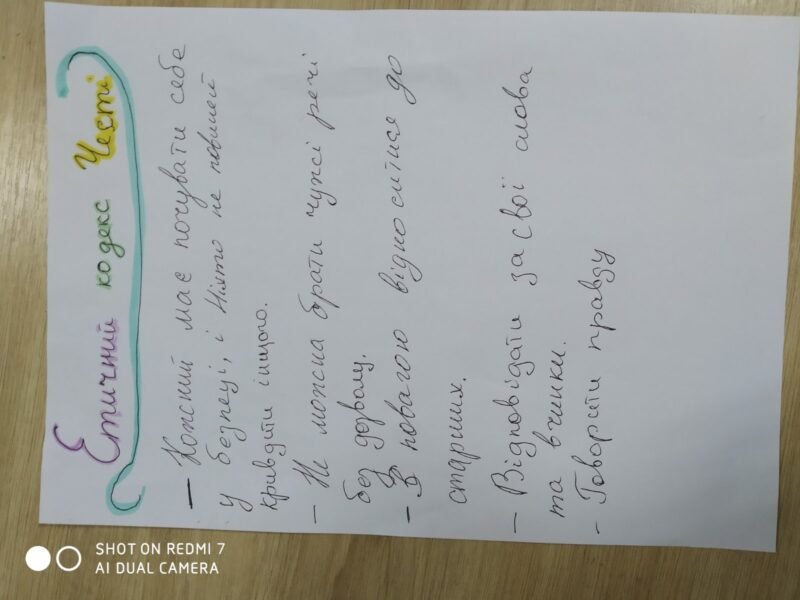 Етичний кодекс Честі
— Кожний має почувати себе
у безпеці, і Ніхто не повинен
кривдити іншого.
— Не можна брати чужі речі
без дозволу.
— З повагою відноситися до
старших.
— Відповідати за свої слова
та вчинки.
— Говорити правду
SHOT ON REDMI 7
AI DUAL CAMERA